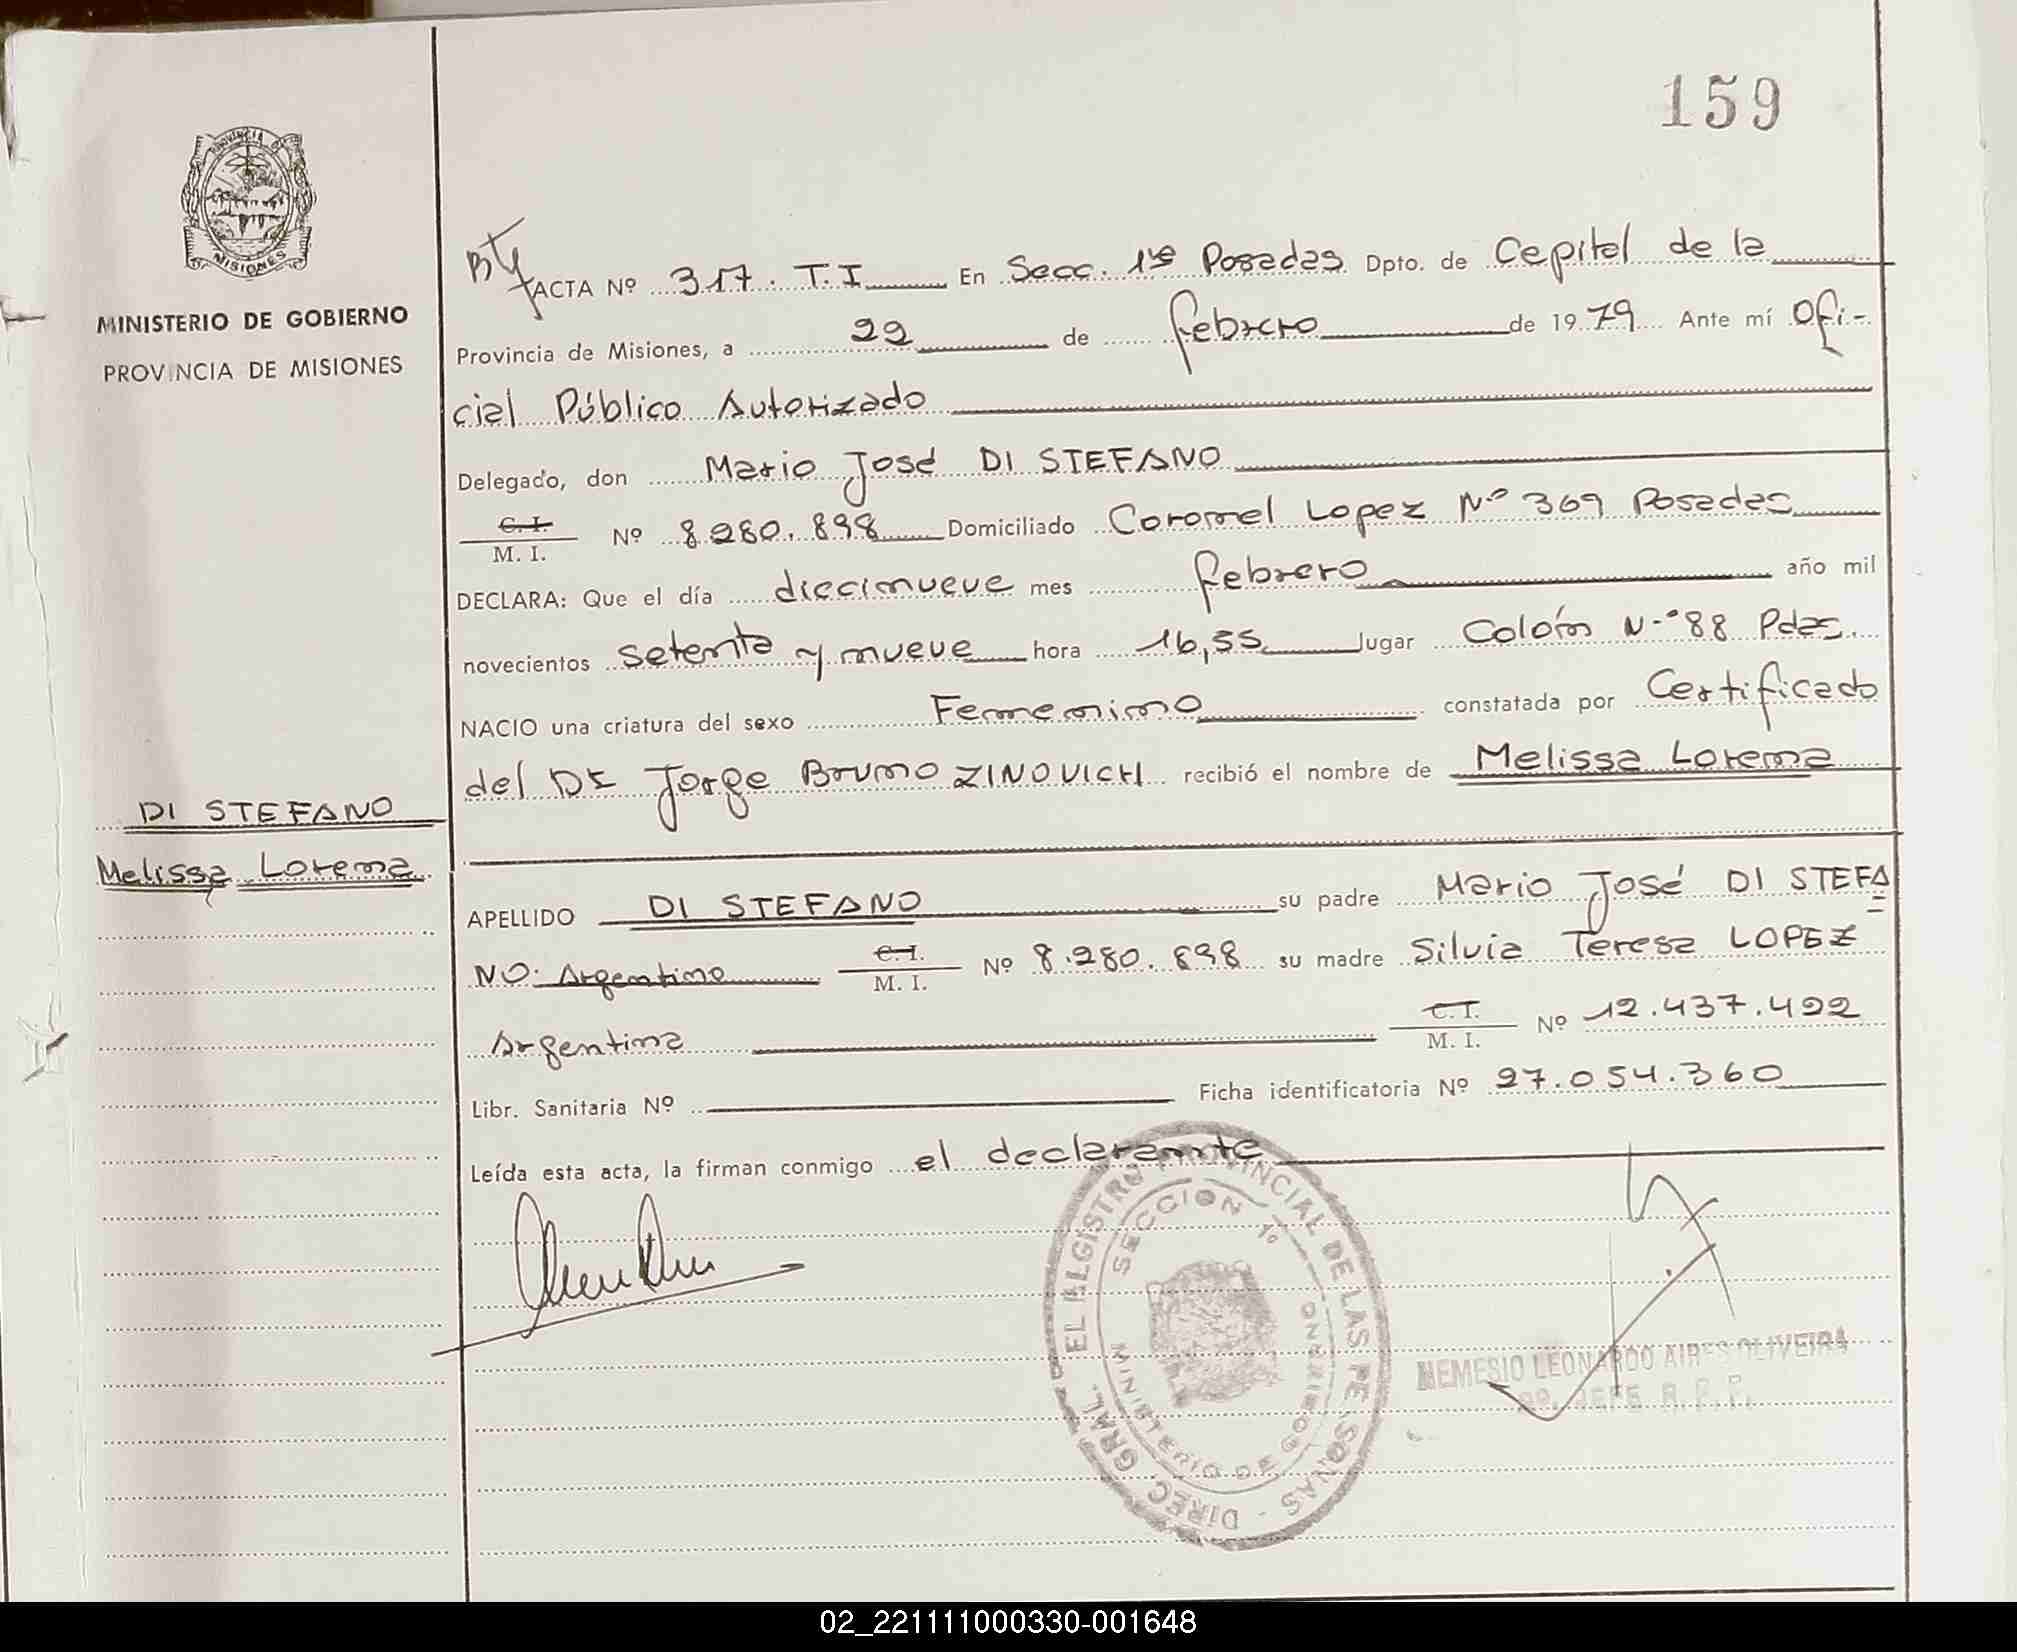 159
PROVINCIA D
MISIONES
MINISTERIO DE GOBIERNO
PROVINCIA DE MISIONES
ACTA Nº 317. T.I En Secc. 1ra Posadas Dpto. de Capital de la
Provincia de Misiones, a 22 de febrero de 1979 Ante mí Ofi-
cial Público Autorizado
Delegado, don Mario José DI STEFANO
C.I.
M. I.
Nº 8.280.898 Domiciliado Coronel Lopez Nº 369 Posadas
DECLARA: Que el día diecinueve mes febrero año mil
novecientos setenta y nueve hora 16,55 lugar Colón N.º 88 Pdas.
NACIO una criatura del sexo Femenino constatada por Certificado
del DR Jorge Bruno ZINOVICH recibió el nombre de Melissa Lorena
DI STEFANO
Melissa Lorena
APELLIDO DI STEFANO su padre Mario José DI STEFA
NO. Argentino C.I. M. I. Nº 8.280.898 su madre Silvia Teresa LOPEZ
Argentina C.I. M. I. Nº 12.437.422
Libr. Sanitaria Nº Ficha identificatoria Nº 27.054.360
Leída esta acta, la firman conmigo el declarante
DIREC. GRAL. EL REGISTRO PROVINCIAL DE LAS PERSONAS
SECCION 1º
MINISTERIO DE GOBIERNO
NEMESIO LEONARDO AIRES OLIVEIRA
JEFE R. P. P.
02_221111000330-001648